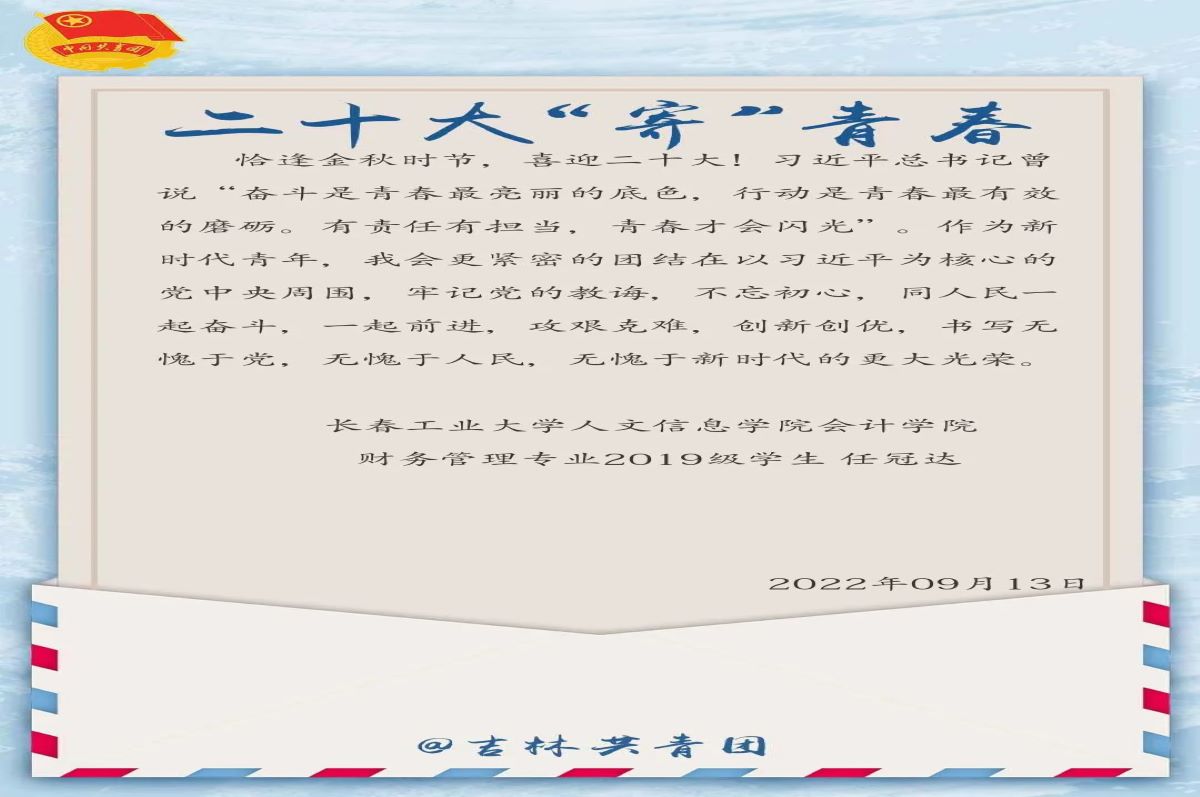 中国共青团
二十大“寄”青春
恰逢金秋时节，喜迎二十大！习近平总书记曾
说“奋斗是青春最亮丽的底色，行动是青春最有效
的磨砺。有责任有担当，青春才会闪光”。作为新
时代青年，我会更紧密的团结在以习近平为核心的
党中央周围，牢记党的教诲，不忘初心，同人民一
起奋斗，一起前进，攻艰克难，创新创优，书写无
愧于党，无愧于人民，无愧于新时代的更大光荣。
长春工业大学人文信息学院会计学院
财务管理专业2019级学生 任冠达
2022年09月13日
@吉林共青团